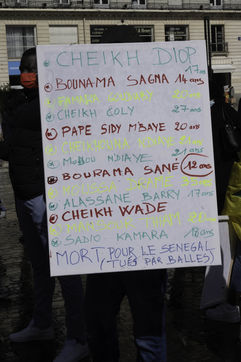 CHEIKH DIOP 17 ans
BOUNAMA SAGNA 14 ans
20 ans
CHEIKH COLY 27 ans
PAPE SIDY MBAYE 20 ans
CHEIKHOUNA
MODOU NDIAYE 21 ans
BOURAMA SANÉ (12 ans)
MOUSSA DRAME 35 ans
ALASSANE BARRY 17 ans
CHEIKH WADE
THIAM 20
SADIO KAMARA 18 ans
MORT POUR LE SENEGAL
(TUÉS PAR BALLES)